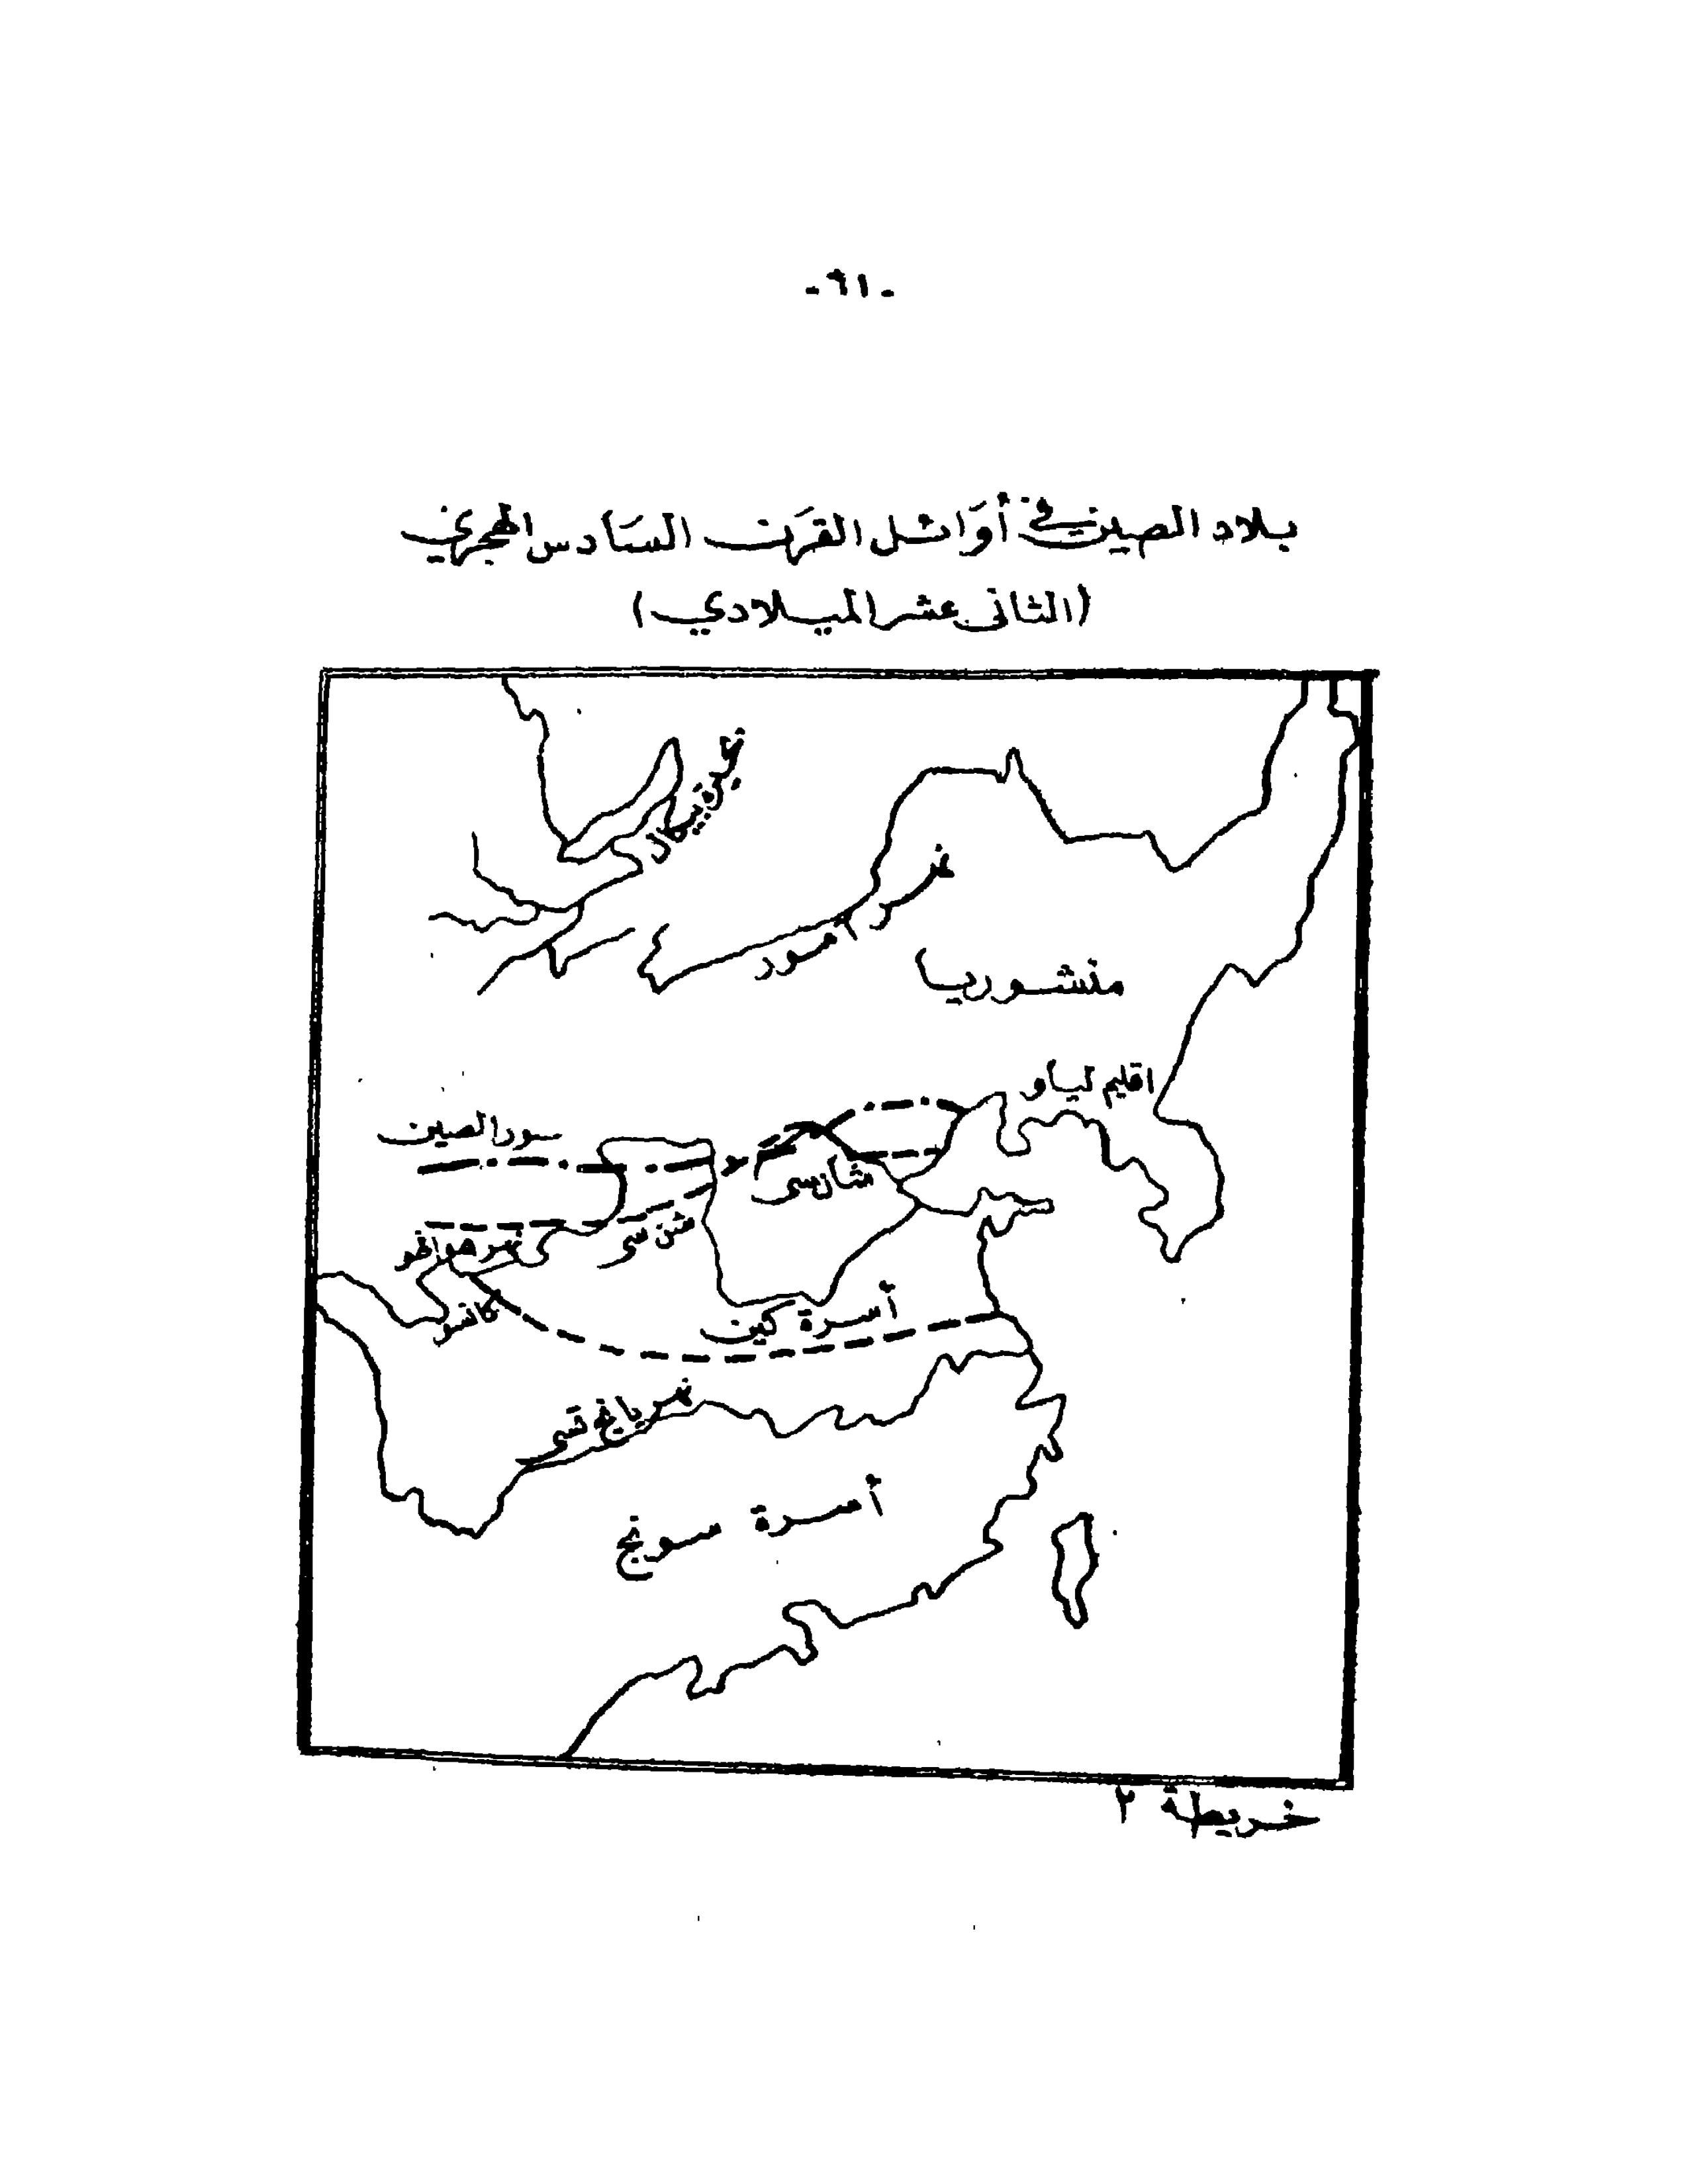 -٦١-
بلاد الصين في أوَائل القرَن السَادس الهجري
(الثانى عشر الميلادي)
بحيرة بيكال
نهر آمور
منشوريا
اقليم لياو
سور الصين
شان سى
شن سى
نهر هوانجهو
كانسو
أسرة كين
نهر يانج تسى
أسرة سونج
خريطة ٢